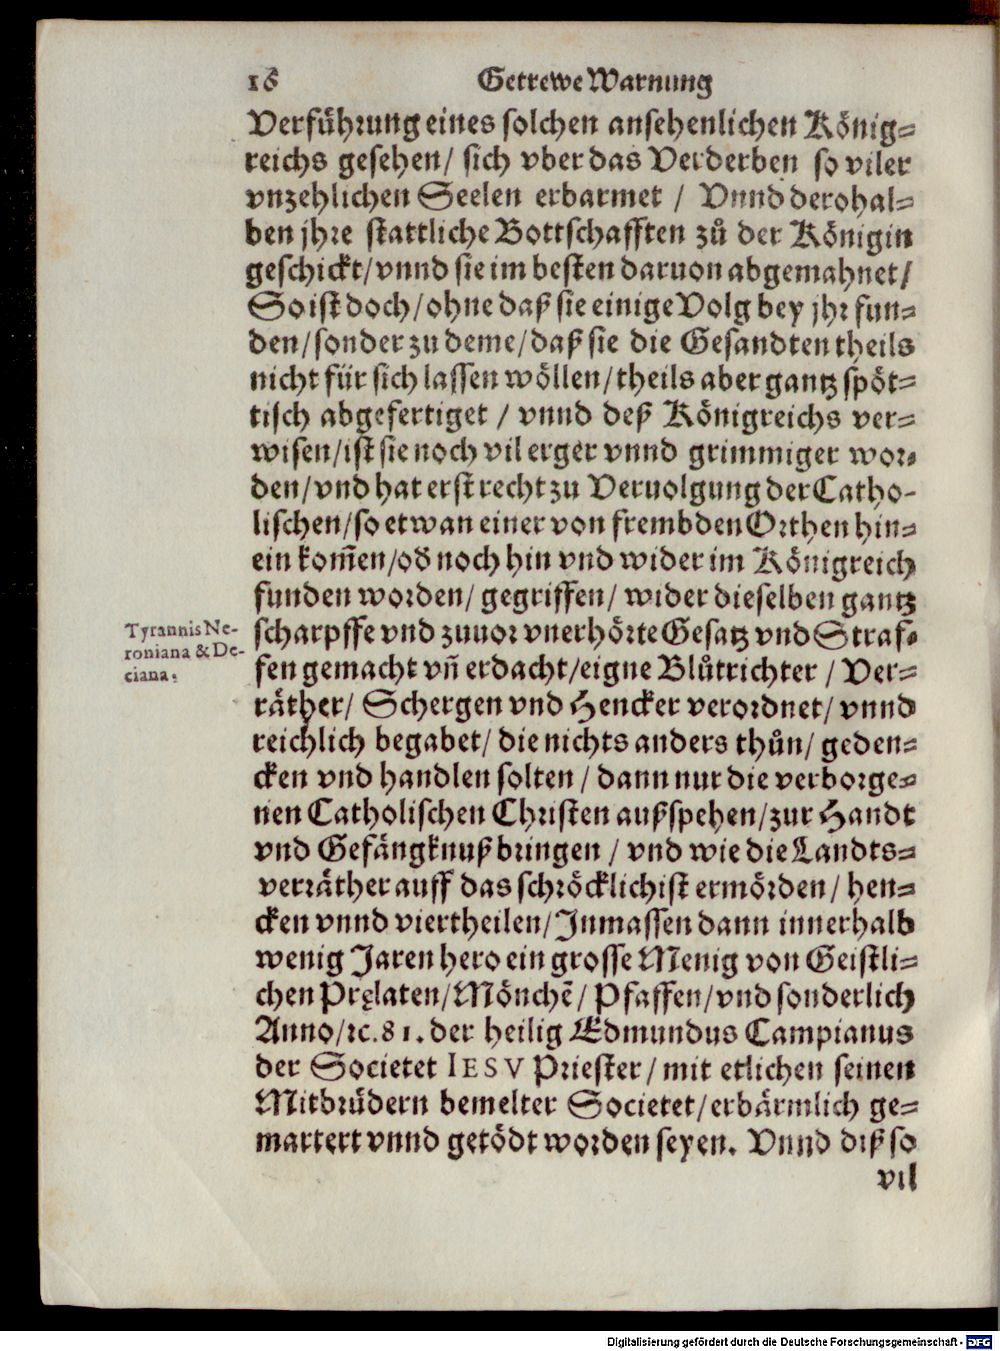 16 Getrewe Warnung
Verführung eines solchen ansehenlichen König-
reichs gesehen/ sich vber das Verderben so viler
vnzehlichen Seelen erbarmet / Vnnd derohal-
ben jhre stattliche Bottschafften zů der Königin
geschickt/ vnnd sie im besten daruon abgemahnet/
So ist doch/ ohne daß sie einige Volg bey jhr fun-
den/ sonder zu deme/ daß sie die Gesandten theils
nicht für sich lassen wöllen/ theils aber gantz spöt-
tisch abgefertiget / vnnd deß Königreichs ver-
wisen/ ist sie noch vil erger vnnd grimmiger wor-
den/ vnd hat erst recht zu Veruolgung der Catho-
lischen/ so etwan einer von frembden Orthen hin-
ein kom̃en/ od noch hin vnd wider im Königreich
funden worden/ gegriffen/ wider dieselben gantz
Tyrannis Ne-
roniana & De-
ciana.
scharpffe vnd zuuor vnerhörte Gesatz vnd Straf-
fen gemacht vñ erdacht/ eigne Blůtrichter / Ver-
räther/ Schergen vnd Hencker verordnet/ vnnd
reichlich begabet/ die nichts anders thůn/ geden-
cken vnd handlen solten / dann nur die verborge-
nen Catholischen Christen außspehen/ zur Handt
vnd Gefängknuß bringen / vnd wie die Landts-
verräther auff das schröcklichist ermörden/ hen-
cken vnnd viertheilen/ Inmassen dann innerhalb
wenig Jaren hero ein grosse Menig von Geistli-
chen Pręlaten/ Mönchē/ Pfaffen/ vnd sonderlich
Anno/ ꝛc. 81. der heilig Edmundus Campianus
der Societet IESV Priester/ mit etlichen seinen
Mitbrüdern bemelter Societet/ erbärmlich ge-
martert vnnd getödt worden seyen. Vnnd diß so
vil
Digitalisierung gefördert durch die Deutsche Forschungsgemeinschaft - DFG